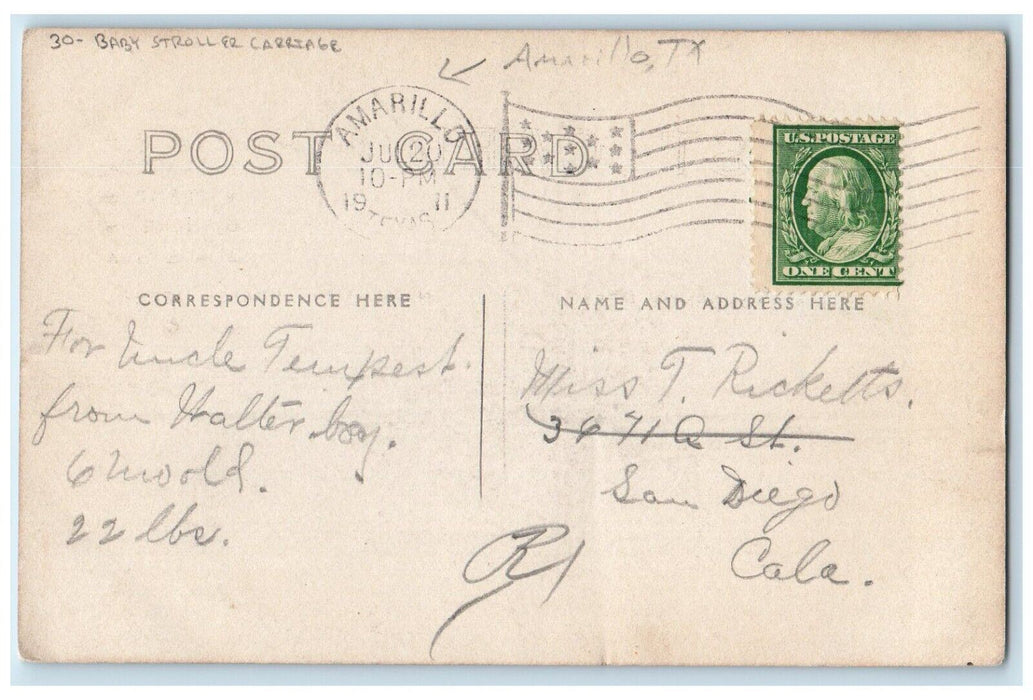 30- BABY STROLLER CARRIAGE
Amarillo, TX
POST CARD
AMARILLO
JUL 20
10-PM
19 11
TEXAS
U.S. POSTAGE
ONE CENT
CORRESPONDENCE HERE
NAME AND ADDRESS HERE
For Uncle Tempest.
from Walter boy.
6 mo old.
22 lbs.
Miss T. Ricketts.
St.
San Diego
Cala.